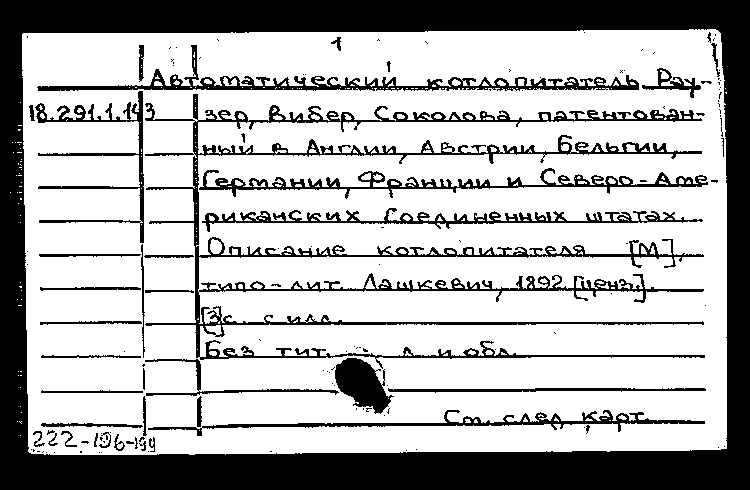 1
Автоматический котлопитатель Рау-
18.291.1.143 зер, Вибер, Соколова, патентован-
ный в Англии, Австрии, Бельгии,
Германии, Франции и Северо-Аме-
риканских Соединенных штатах.
Описание котлопитателя [М],
типо-лит. Лашкевич, 1892 [ценз.].
[3]с. с илл.
Без тит. л. и обл.
См. след. карт.
222-196-199